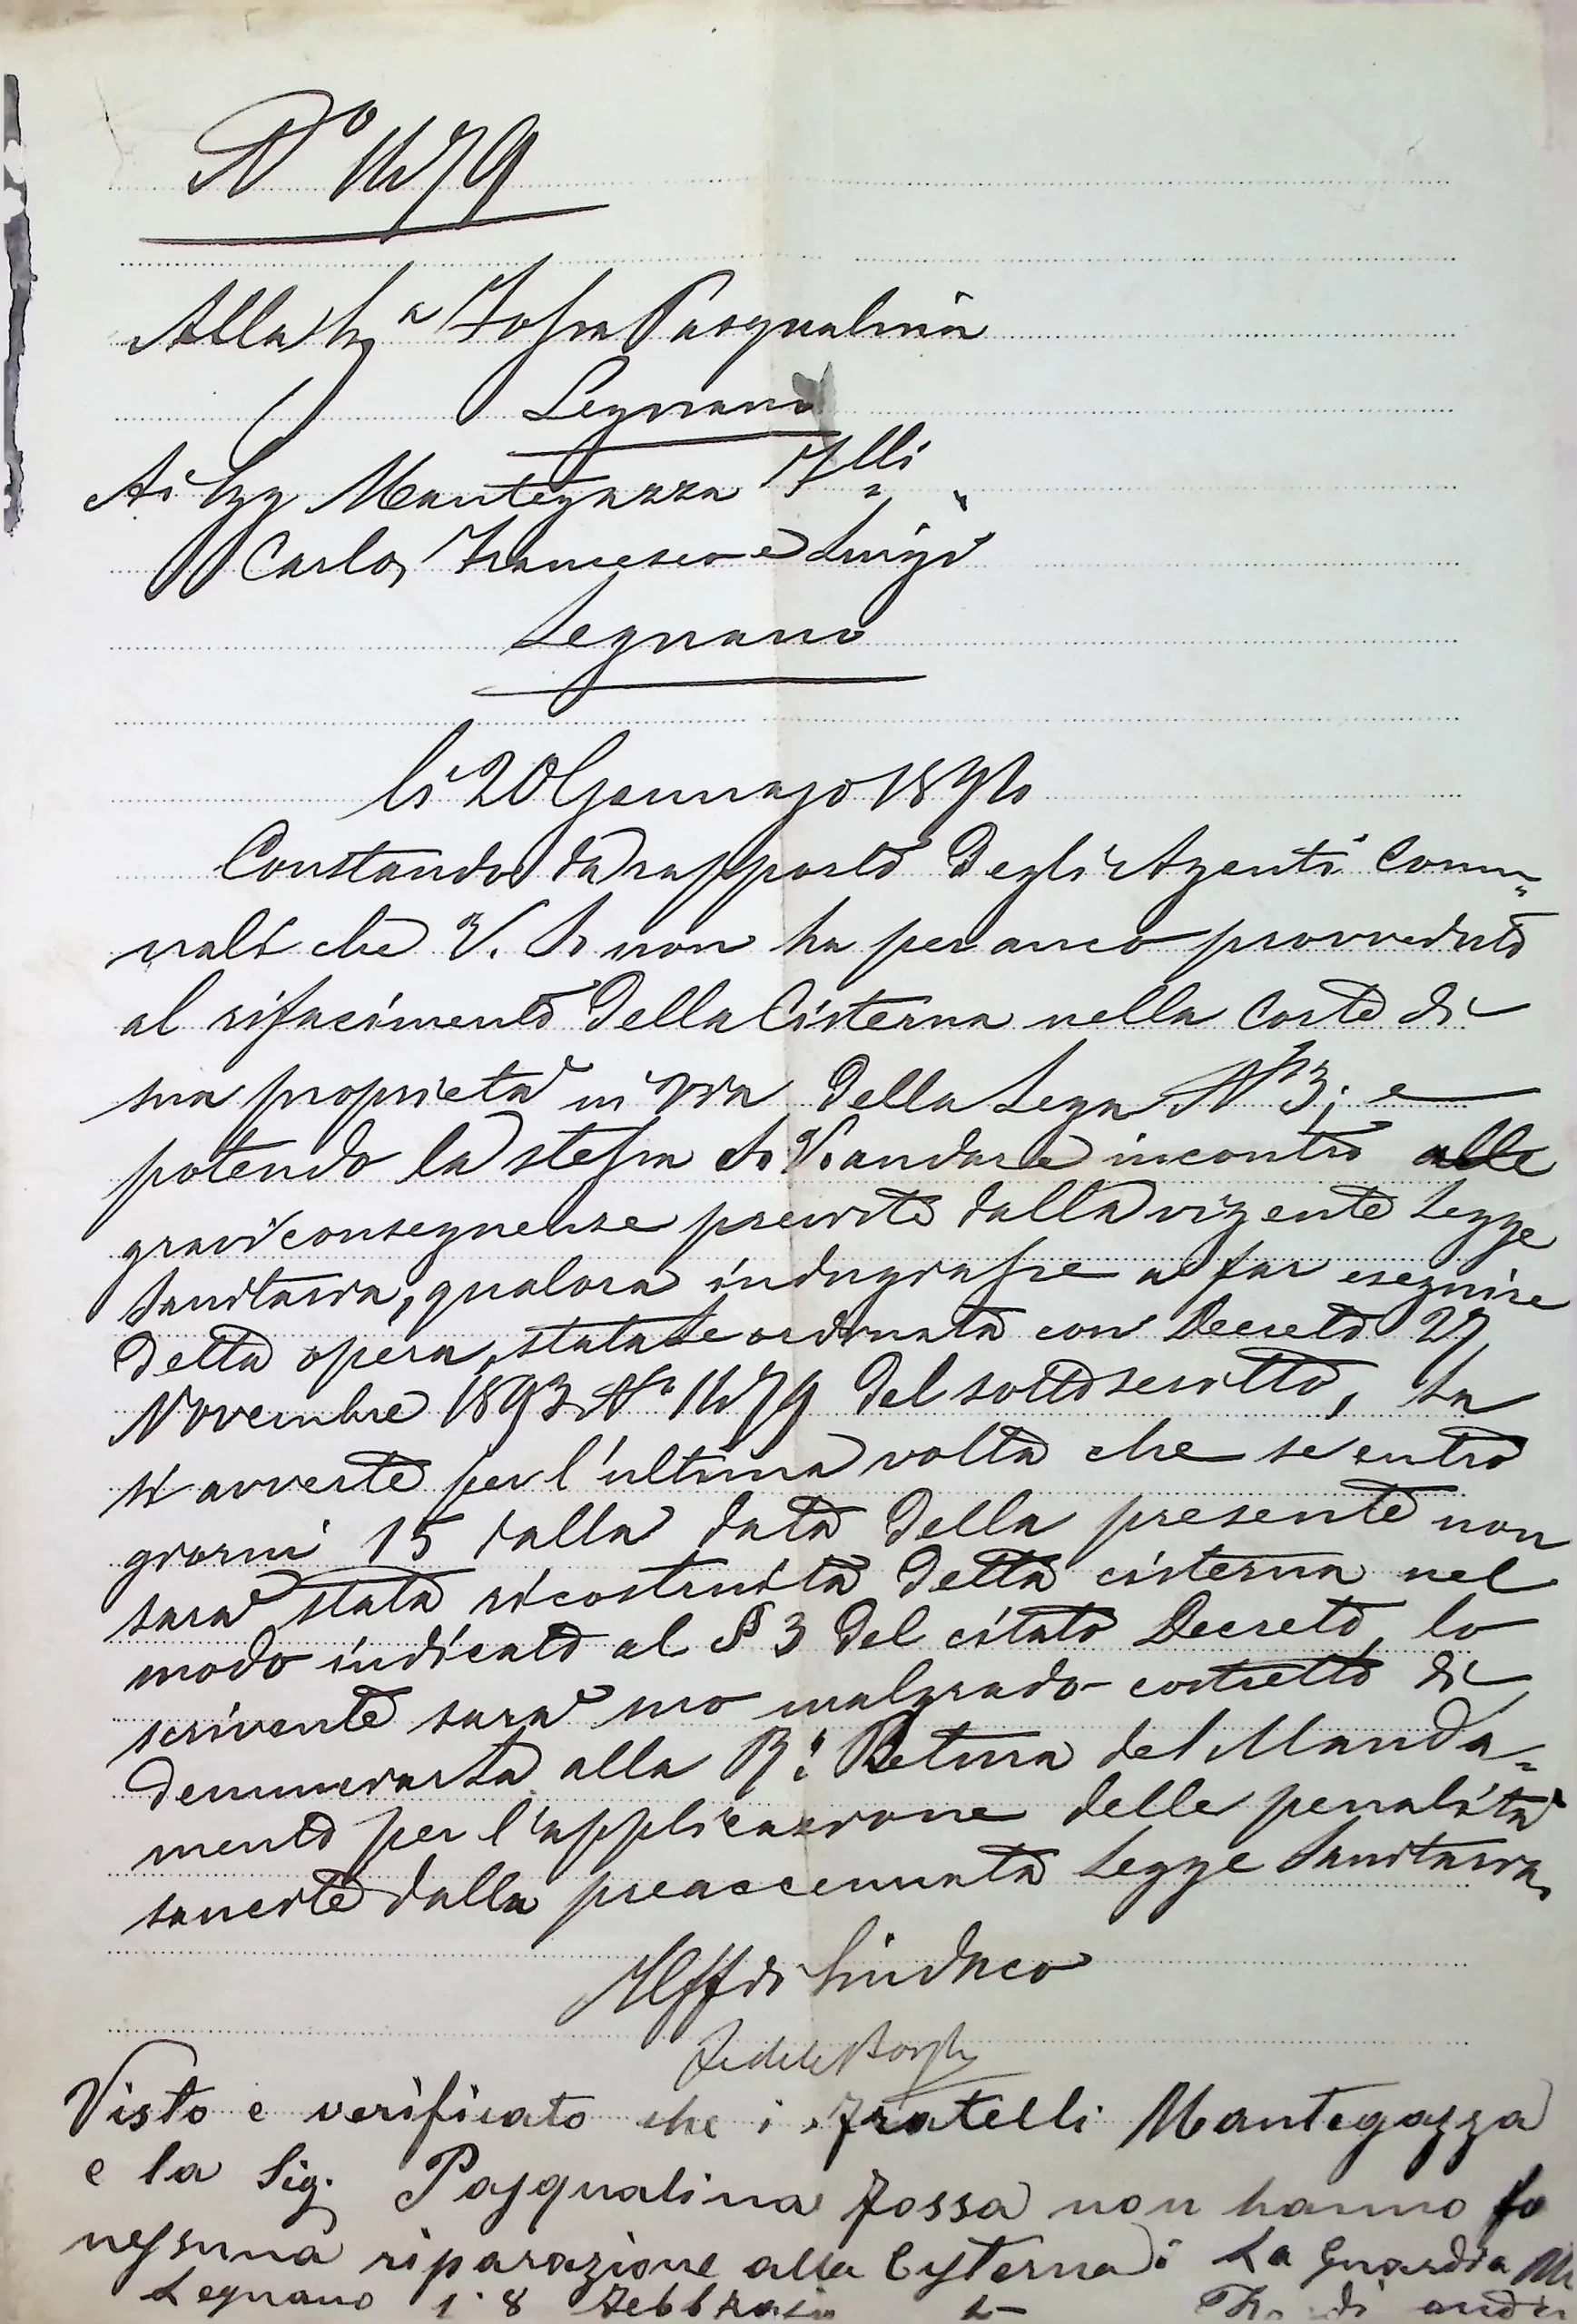 N° 1479
Alla Sig.ª Fossa Pasqualina
Legnano
Ai Sigg Mantegazza F.lli
Carlo, Francesco e Luigi
Legnano
li 20 Gennajo 1894
Constando da rapporto degli Agenti Comu=
nali che V. S. non ha per anco provveduto
al rifacimento della Cisterna nella Corte di
sua proprietà in Via della Lega N° 3; e
potendo la stessa S. V. andare incontro alle
gravi conseguenze prescritte dalla vigente Legge
Sanitaria, qualora indugiasse a far eseguire
detta opera, statale ordinata con Decreto 27
Novembre 1893 N° 1479 del sottoscritto, La
si avverte per l'ultima volta che se entro
giorni 15 dalla data della presente non
sarà stata ricostruita detta cisterna nel
modo indicato al § 3 del citato Decreto, lo
scrivente sarà suo malgrado costretto di
denunciarLa alla R.ª Pretura del Manda=
mento per l'applicazione delle penalità
sancite dalla preaccennata Legge Sanitaria.
Il ff di Sindaco
Fedele Borghi
Visto e verificato che i fratelli Mantegazza
e la Sig. Pasqualina Fossa non hanno fa
nessuna riparazione alla Cysterna: La Guardia M
Legnano 1·8 Febbraio